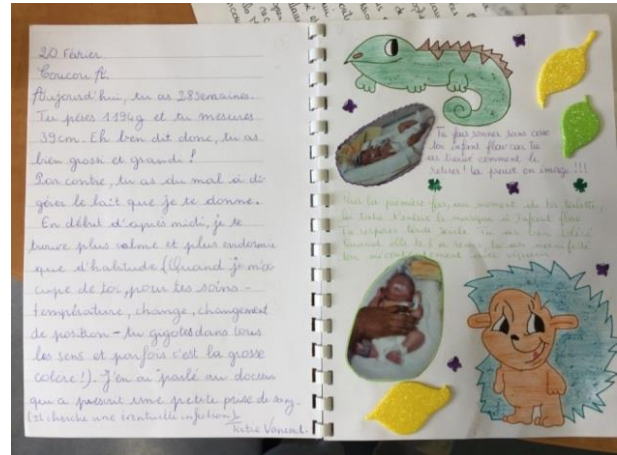 20 Février
Coucou A.
Aujourd'hui, tu as 28 semaines.
Tu pèses 1194g et tu mesures
39cm. Eh ben dit donc, tu as
bien grossi et grandi !
Par contre, tu as du mal à di-
gérer le lait que je te donne.
En début d'après midi, je te
trouve plus calme et plus endormie
que d'habitude (Quand je m'oc-
cupe de toi, pour tes soins -
température, change, changement
de position - tu gigotes dans tous
les sens et parfois c'est la grosse
colère !). J'en ai parlé au docteur
qui a prescrit une petite prise de sang.
(Il cherche une éventuelle infection).
Tatie
Tu fais sonner sans cesse
ton infant flow car tu
as trouvé comment le
retirer ! La preuve en image !!!
Pour la première fois, au moment de ta toilette,
ta tatie t'enlève le masque à infant flow
Tu respires toute seule. Tu as bien toléré
Quand elle te l'a remis, tu as manifesté
ton mécontentement avec vigueur